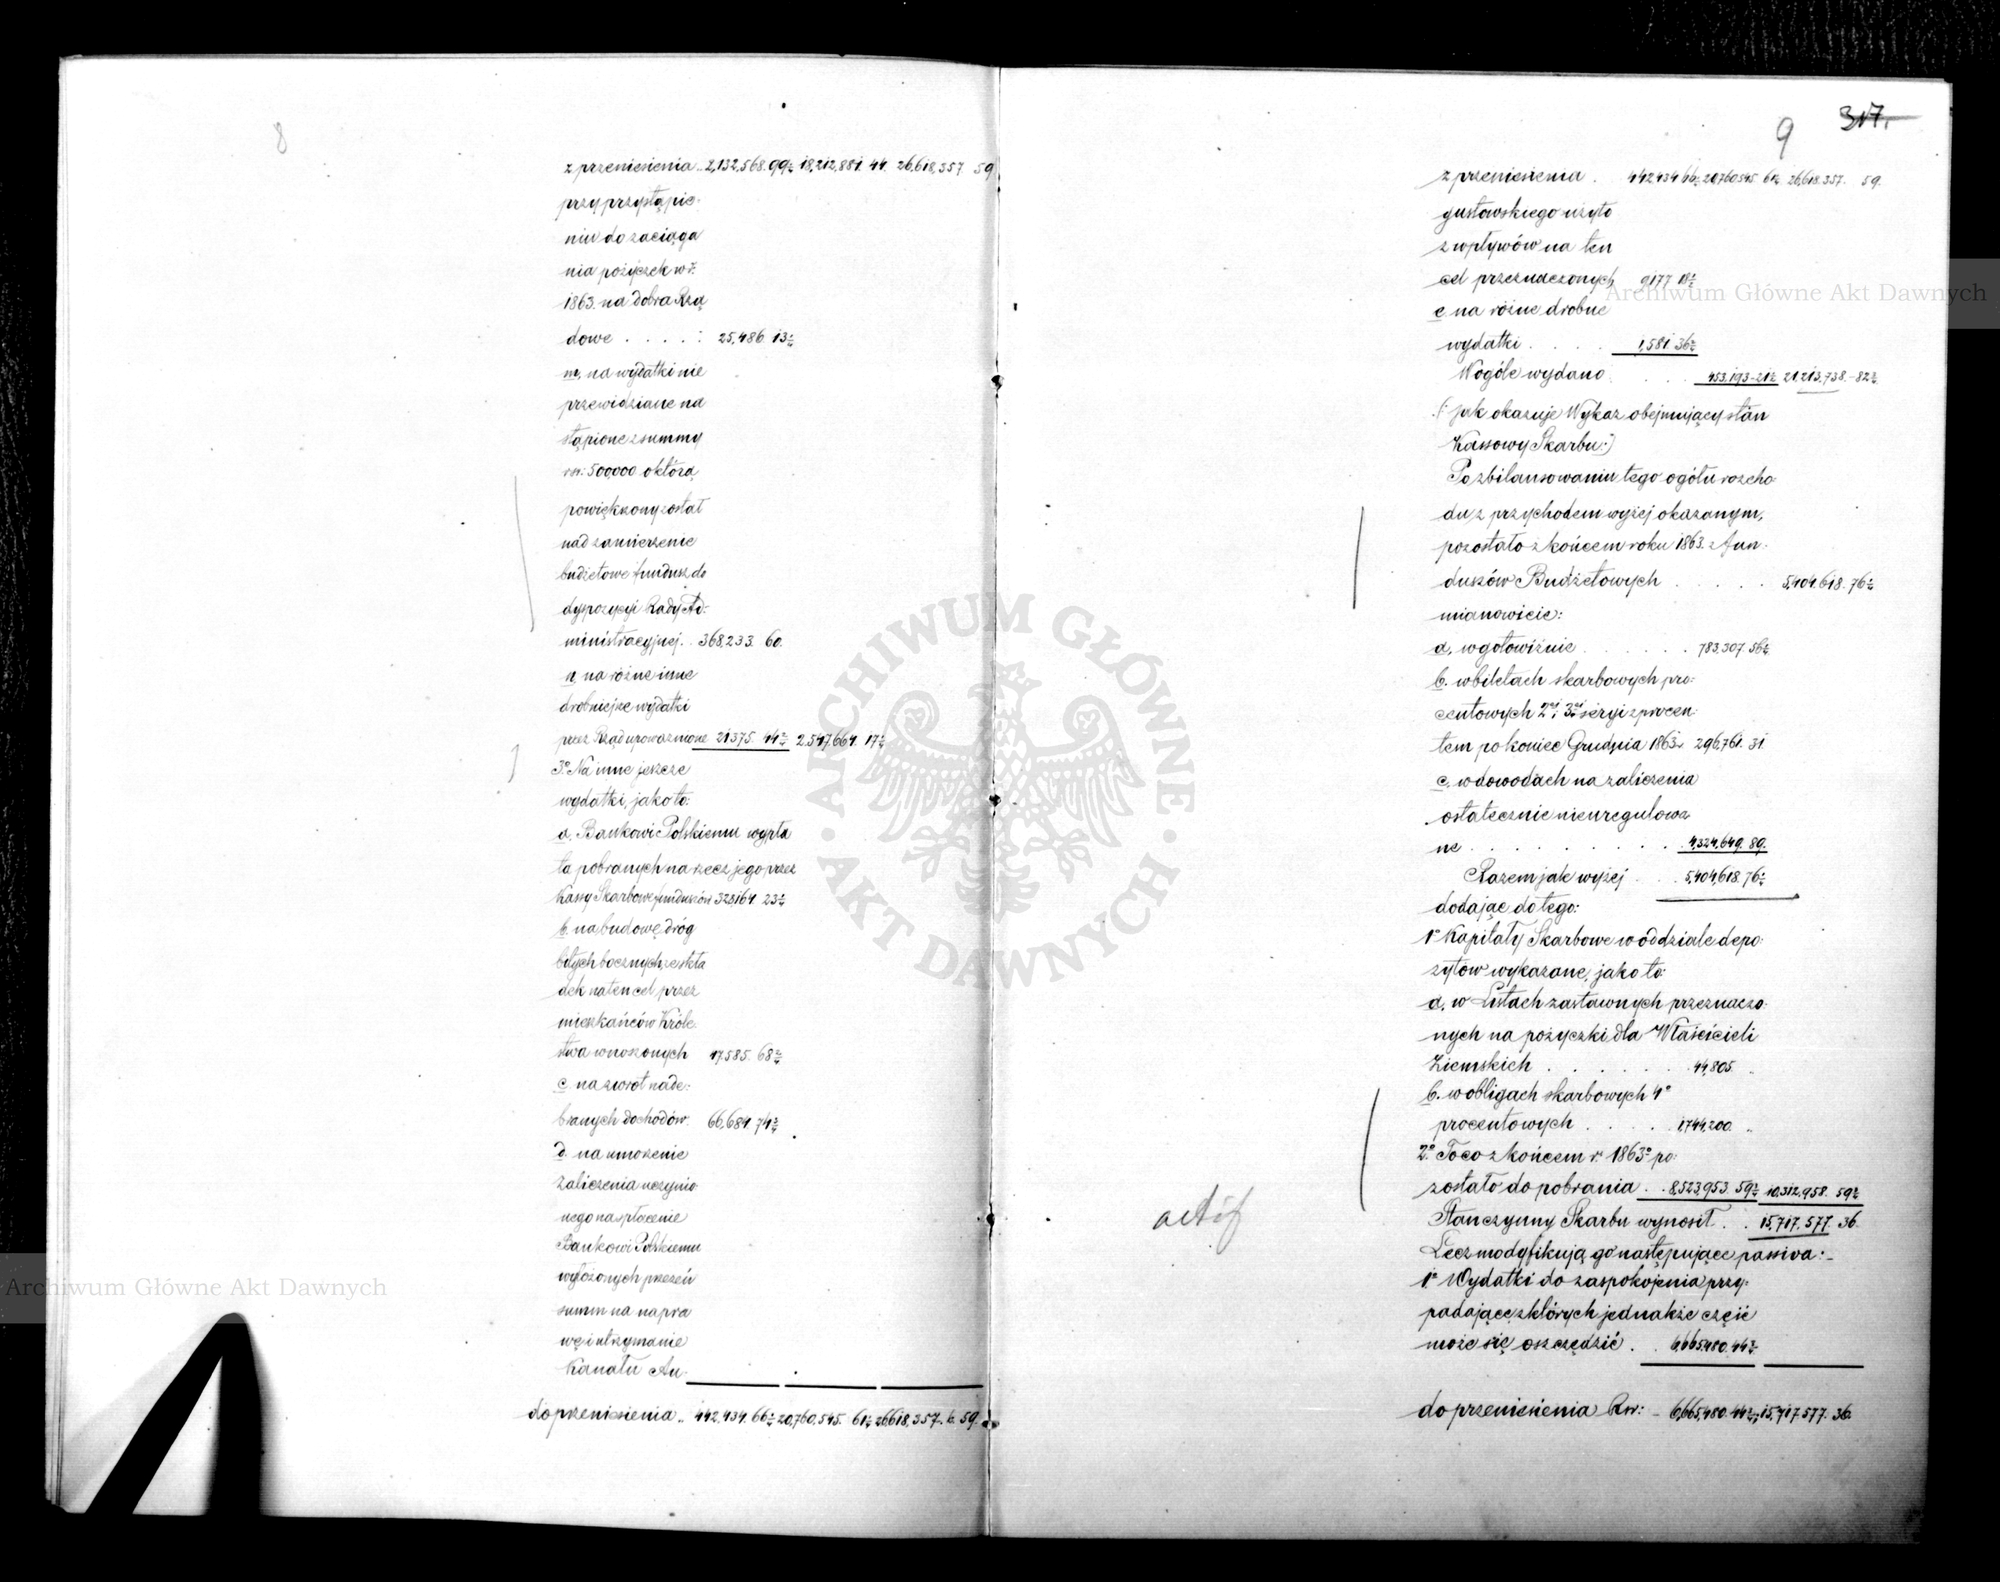 8
z przeniesienia .. 2,132,568. 99½ 18,212,881. 44. 26,618,357 59
przy przystąpie-
niu do zaciąga
nia pożyczek w r.
1863. na dobra Rzą
dowe . . . . : 25,486. 13½
m, na wydatki nie
przewidziane na
stąpione z summy
rsr: 500,000 o którą
powiększony został
nad zamierzenie
budżetowe fundusz do
dyspozycyi Rady Ad:
ministracyjnej . . 368,233. 60.
n, na różne inne
drobniejsze wydatki
przez Rząd upoważnione 21375. 44½ 2.547,664. 17½
3° Na inne jeszcze
wydatki, jako to:
a, Bankowi Polskiemu wypła
ta pobranych na rzecz jego przez
Kassy Skarbowe funduszów 328164. 23½
b. na budowę dróg
bitych bocznych ze skła
dek na ten cel, przez
mieszkańców Króle-
stwa wnoszonych 17.585. 68½
c. na zwrot nade-
branych dochodów. 66,684. 74½
d. na umorzenie
zaliczenia uczynio-
nego na płacenie
Bankowi Polskiemu
wyłożonych przezeń
summ na napra
wę i utrzymanie
Kanału Au-
do przeniesienia .. 442,434. 66½ 20,760,545. 61½ 26,618,357. k. 59.
9 317.
z przeniesienia . 442434 66½ 20,760545. 61½ 26,618.357. 59.
gustowskiego użyto
z wpływów na ten
cel przeznaczonych 9177 18½
e na różne drobne
wydatki . . . . 1,581. 36½
Wogóle wydano . . . . 453,193-21½ 21,213,738.-82½
(: jak okazuje Wykaz obejmujący stan
Kassowy Skarbu:)
Po zbilansowaniu tego ogółu rozcho
du, z przychodem wyżej okazanym,
pozostało z końcem roku 1863. z fun-
duszów Budżetowych . . . . . 5,404.618. 76½
mianowicie:
a, w gotowiźnie . . . . . . 783,307. 56½
b. w biletach skarbowych pro-
centowych 2ej i 3ej seryi z procen-
tem po koniec Grudnia 1863 r. 296,761. 31.
c. w dowodach na zaliczenia
ostatecznie nieuregulowa
ne . . . . . . . . . 4,324,649. 89.
Razem jak wyżej . . . 5,404,618. 76½
dodając do tego:
1° Kapitały Skarbowe w oddziale depo-
zytów wykazane, jako to:
a, w Listach zastawnych przeznaczo-
nych na pożyczki dla Właścicieli
Ziemskich . . . . . . 44,805. „
b. w obligach skarbowych 4°
procentowych . . . . 1744,200. „
2° To co z końcem r. 1863° po-
zostało do pobrania . . 8,523,953. 59½ 10,312,958. 59½
Stan czynny Skarbu wynosił . . 15,717,577. 36.
Lecz modyfikują go następujące passiva:-
1° Wydatki do zaspokojenia przy-
padające, z których jednakże część
może się oszczędzić . . 6,665,480. 44½
do przeniesienia Rsr: - 6,665,480. 44½, 15,717.577. 36.
actif
ARCHIWUM GŁÓWNE AKT DAWNYCH
Archiwum Główne Akt Dawnych
Archiwum Główne Akt Dawnych